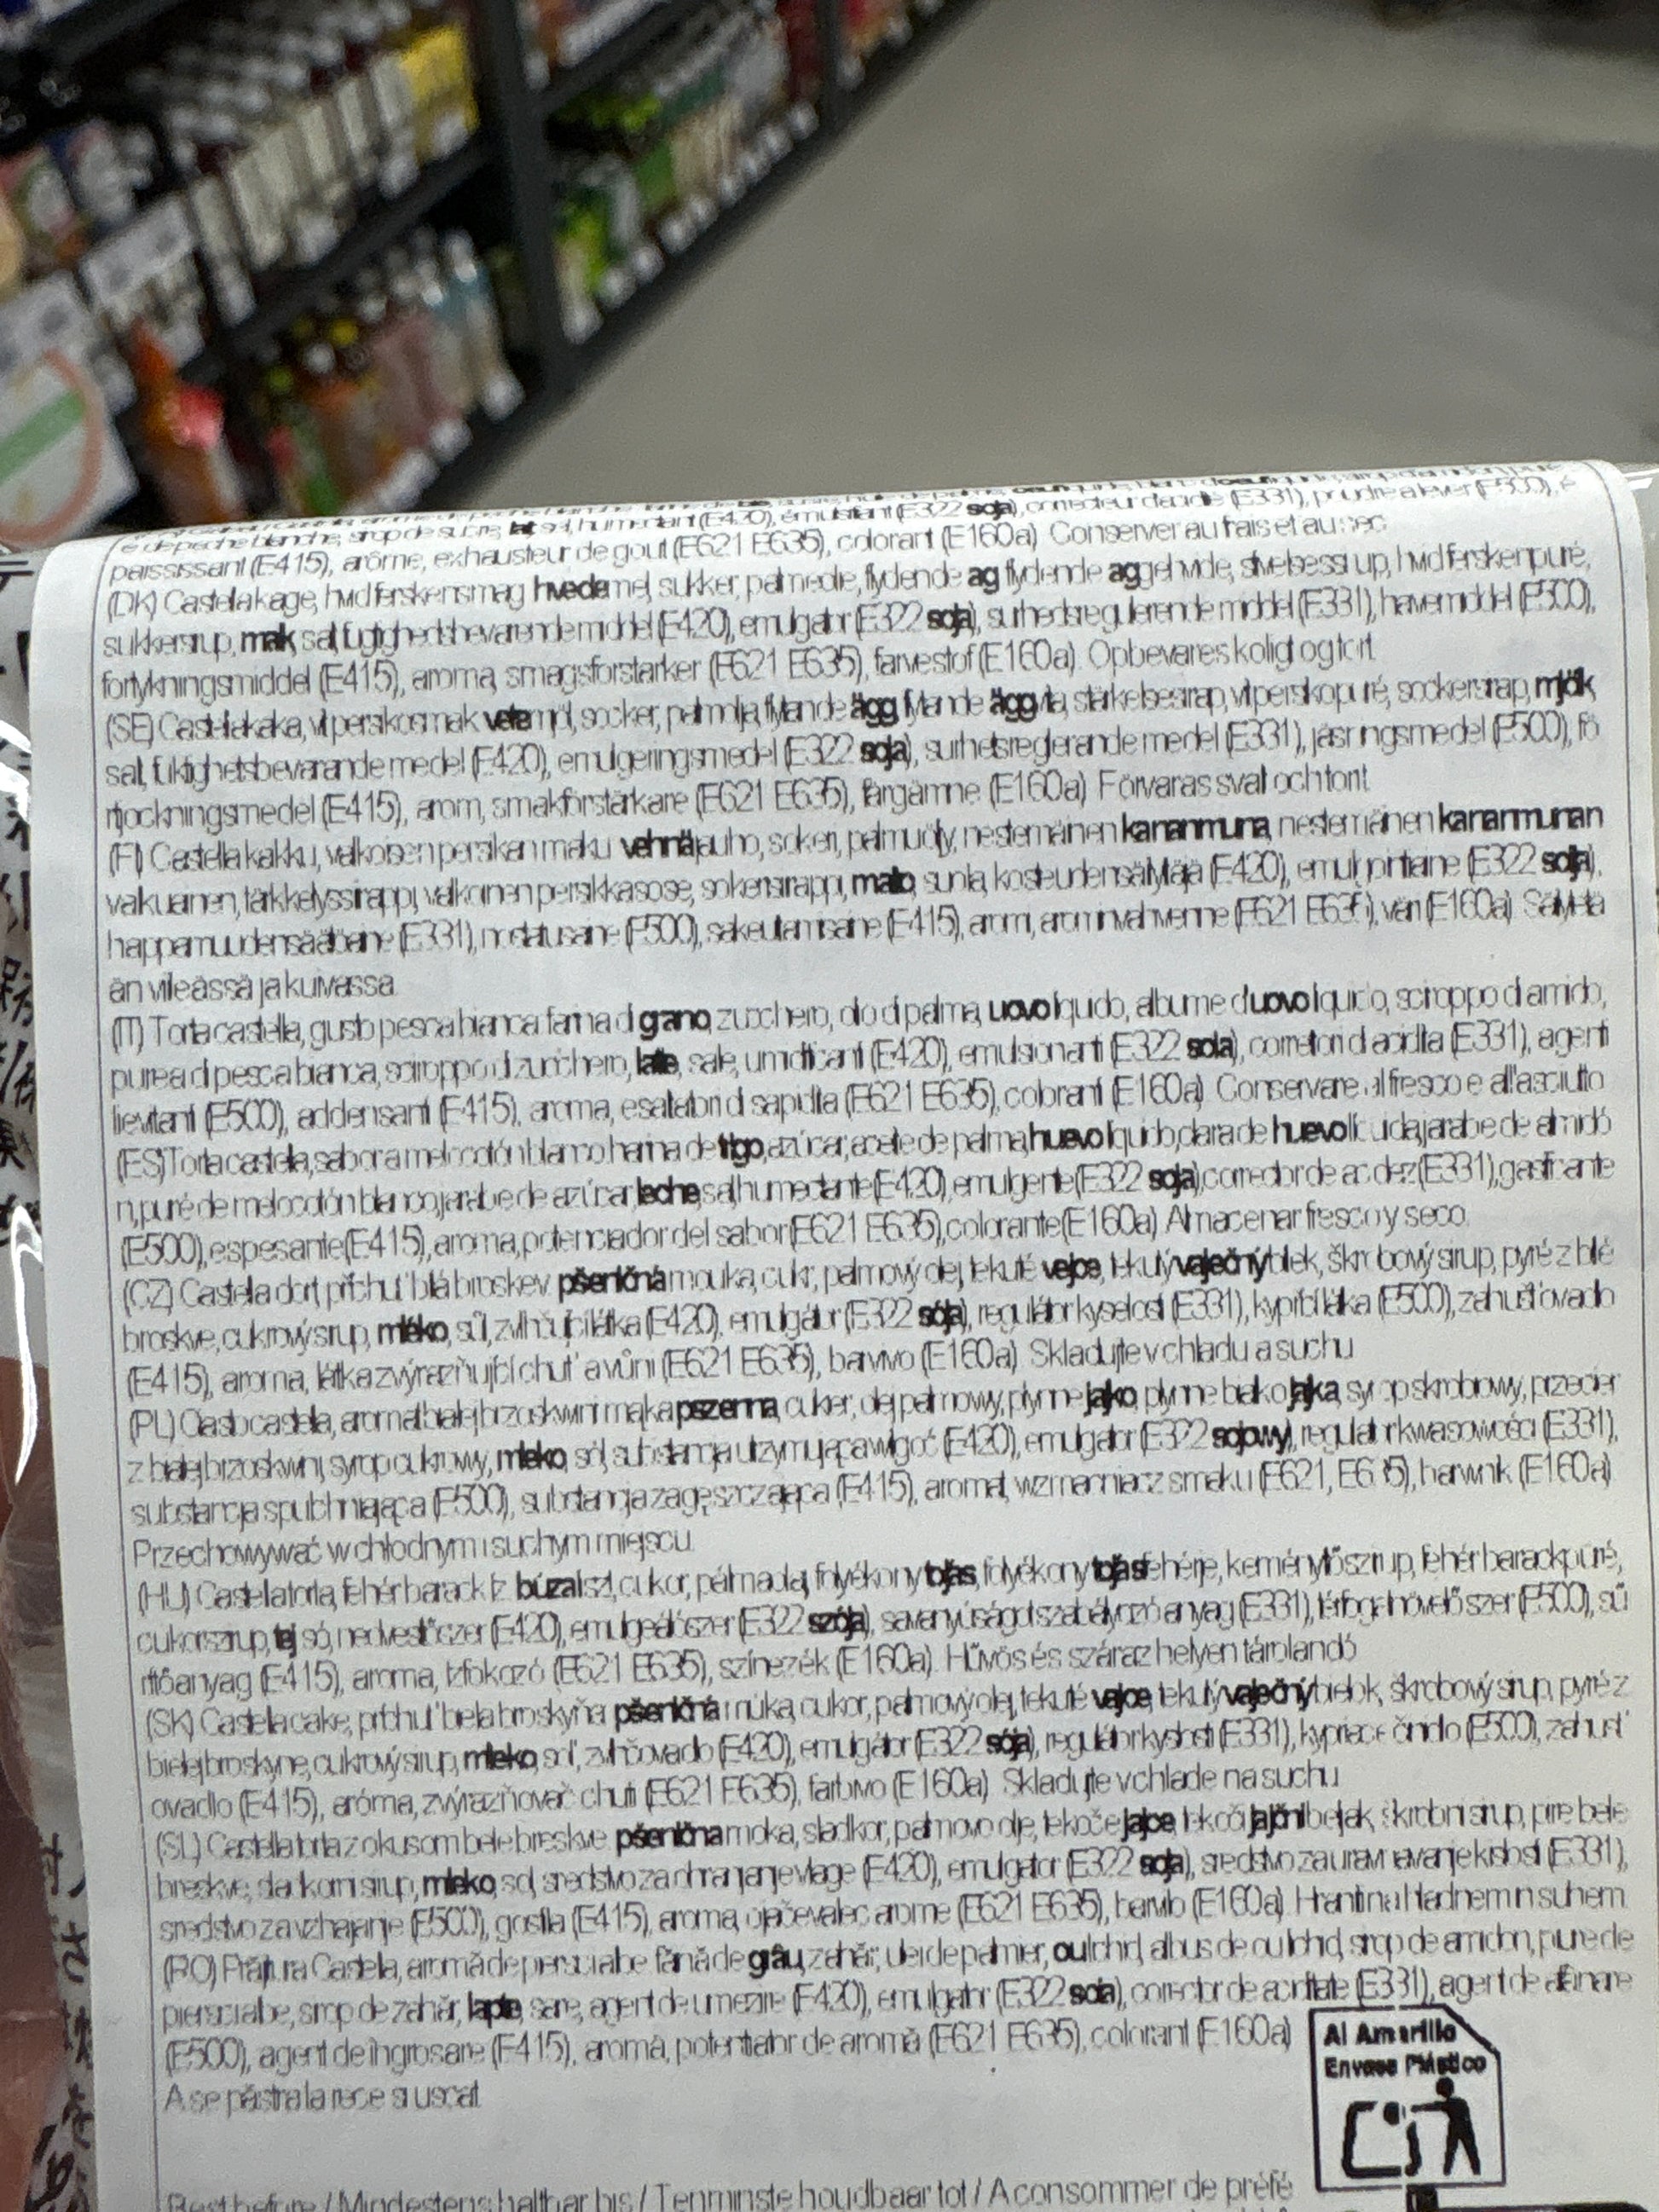 paississant (E415), arôme, exhausteur de gout (E621 E635), colorant (E160a) Conserver au frais et au sec
(DK) Castella kage, hvid ferskensmag hvedemel, sukker, palmeolie, flydende æg flydende æggehvide, stivelsessirup, hvid ferskenpuré,
sukkersirup, mælk, salt, fugtighedsbevarende middel (E420), emulgator (E322 soja), surhedsregulerende middel (E331), hævemiddel (E500),
fortykningsmiddel (E415), aroma, smagsforstærker (E621 E635), farvestof (E160a). Opbevares køligt og tørt
(SE) Castella kaka, vit persikosmak vetemjöl, socker, palmolja, flytande ägg, flytande äggvita, stärkelsesirap, vit perskopuré, sockersirap, mjölk,
salt, fuktighetsbevarande medel (E420), emulgeringsmedel (E322 soja), surhetsreglerande medel (E331), jäsningsmedel (E500), fö
rtjockningsmedel (E415), arom, smakförstärkare (E621 E635), färgämne (E160a) Förvaras svalt och torrt
(FI) Castella kakku, valkoisen persikan maku vehnäjauho, sokeri, palmuöljy, nestemäinen kananmuna, nestemäinen kananmunan
valkuainen, tärkkelyssiirappi, valkoinen persikkasose, sokerisiirappi, maito, suola, kosteudensäilyttäjä (E420), emulgointiaine (E322 soija),
happamuudensäätöaine (E331), nostatusaine (E500), sakeuttamisaine (E415), aromi, arominvahvenne (E621 E635), väri (E160a) Säilytetä
än viileässä ja kuivassa
(IT) Torta castella, gusto pesca bianca farina di grano, zucchero, olio di palma, uovo liquido, albume d'uovo liquido, sciroppo di amido,
purea di pesca bianca, sciroppo di zucchero, latte, sale, umidificanti (E420), emulsionanti (E322 soia), correttori di acidità (E331), agenti
lievitanti (E500), addensanti (E415), aroma, esaltatori di sapidità (E621 E635), coloranti (E160a) Conservare al fresco e all'asciutto
(ES)Torta castella,sabor a melocotón blanco harina de trigo,azúcar,aceite de palma,huevo líquido,clara de huevo líquida,jarabe de almidó
n,puré de melocotón blanco,jarabe de azúcar,leche,sal,humectante(E420),emulgente(E322 soja),corrector de acidez(E331),gasificante
(E500),espesante(E415),aroma,potenciador del sabor(E621 E635),colorante(E160a) Almacenar fresco y seco
(CZ) Castella dort, příchuť bílá broskev pšeničná mouka, cukr, palmový olej, tekuté vejce, tekutý vaječný bílek, škrobový sirup, pyré z bílé
broskve, cukrový sirup, mléko, sůl, zvlhčující látka (E420), emulgátor (E322 sója), regulátor kyselosti (E331), kypřicí látka (E500), zahušťovadlo
(E415), aroma, látka zvýrazňující chuť a vůni (E621 E635), barvivo (E160a) Skladujte v chladu a suchu
(PL) Ciasto castella, aromat białej brzoskwini mąka pszenna, cukier, olej palmowy, płynne jajko, płynne białko jajka, syrop skrobiowy, przecier
z białej brzoskwini, syrop cukrowy, mleko, sól, substancja utrzymująca wilgoć (E420), emulgator (E322 sojowy), regulator kwasowości (E331),
substancja spulchniająca (E500), substancja zagęszczająca (E415), aromat, wzmacniacz smaku (E621, E635), barwnik (E160a)
Przechowywać w chłodnym i suchym miejscu.
(HU) Castella torta, fehérbarack íz búzaliszt, cukor, pálmaolaj, folyékony tojás, folyékony tojásfehérje, keményítőszirup, fehér barackpüré,
cukorszirup, tej, só, nedvesítőszer (E420), emulgeálószer (E322 szója), savanyúságot szabályozó anyag (E331), térfogatnövelő szer (E500), sű
rítőanyag (E415), aroma, ízfokozó (E621 E635), színezék (E160a). Hűvös és száraz helyen tárolandó
(SK) Castella cake, príchuť biela broskyňa pšeničná múka, cukor, palmový olej, tekuté vajce, tekutý vaječný bielok, škrobový sirup, pyré z
bielej broskyne, cukrový sirup, mlieko, soľ, zvlhčovadlo (E420), emulgátor (E322 sója), regulátor kyslosti (E331), kypriace činidlo (E500), zahusť
ovadlo (E415), aróma, zvýrazňovač chuti (E621 E635), farbivo (E160a) Skladujte v chlade na suchu
(SL) Castella torta z okusom bele breskve pšenična moka, sladkor, palmovo olje, tekoče jajce, tekoči jajčni beljak, škrobni sirup, pire bele
breskve, sladkorni sirup, mleko, sol, sredstvo za ohranjanje vlage (E420), emulgator (E322 soja), sredstvo za uravnavanje kislosti (E331),
sredstvo za vzhajanje (E500), gostila (E415), aroma, ojačevalec arome (E621 E635), barvilo (E160a). Hraniti na hladnem in suhem.
(RO) Prăjitura Castella, aromă de piersici albe făină de grâu, zahăr, ulei de palmier, ou lichid, albus de ou lichid, sirop de amidon, piure de
piersici albe, sirop de zahăr, lapte, sare, agent de umezire (E420), emulgator (E322 soia), corector de aciditate (E331), agent de afânare
(E500), agent de îngroșare (E415), aromă, potențiator de aromă (E621 E635), colorant (E160a)
A se păstra la rece și uscat.
Al Amarillo
Envase Plástico
Best before / Mindestens haltbar bis / Tenminste houdbaar tot / A consommer de préfé